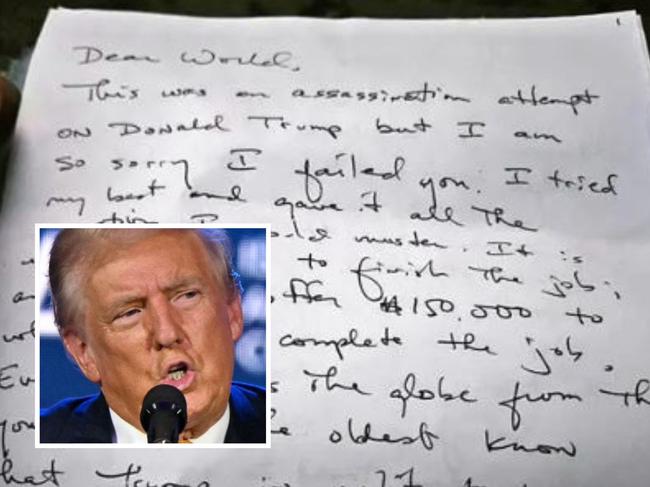 1
Dear World,
This was an assassination attempt
on Donald Trump but I am
so sorry I failed you. I tried
my best and gave it all the
muster. It is
to finish the job;
$150,000 to
complete the job.
the globe from
oldest know
Trump is